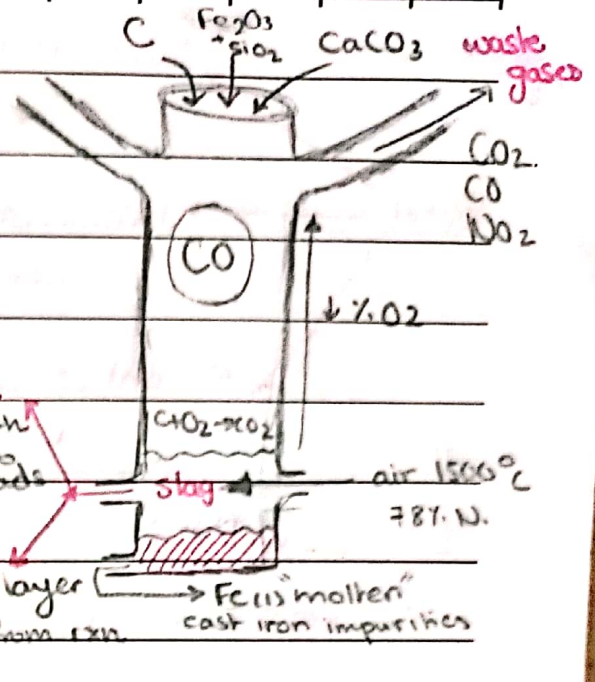 C
Fe2O3
+ SiO2
CaCO3
waste
gases
CO2.
CO
NO2
CO
↓ %O2
C+O2→CO2
slag
air 1500°C
78% N.
layer
Fe(l) "molten"
cast iron impurities
from rxn